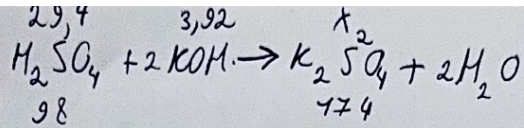 29,4 3,92 x₂
H₂SO₄ + 2KOH → K₂SO₄ + 2H₂O
98 174